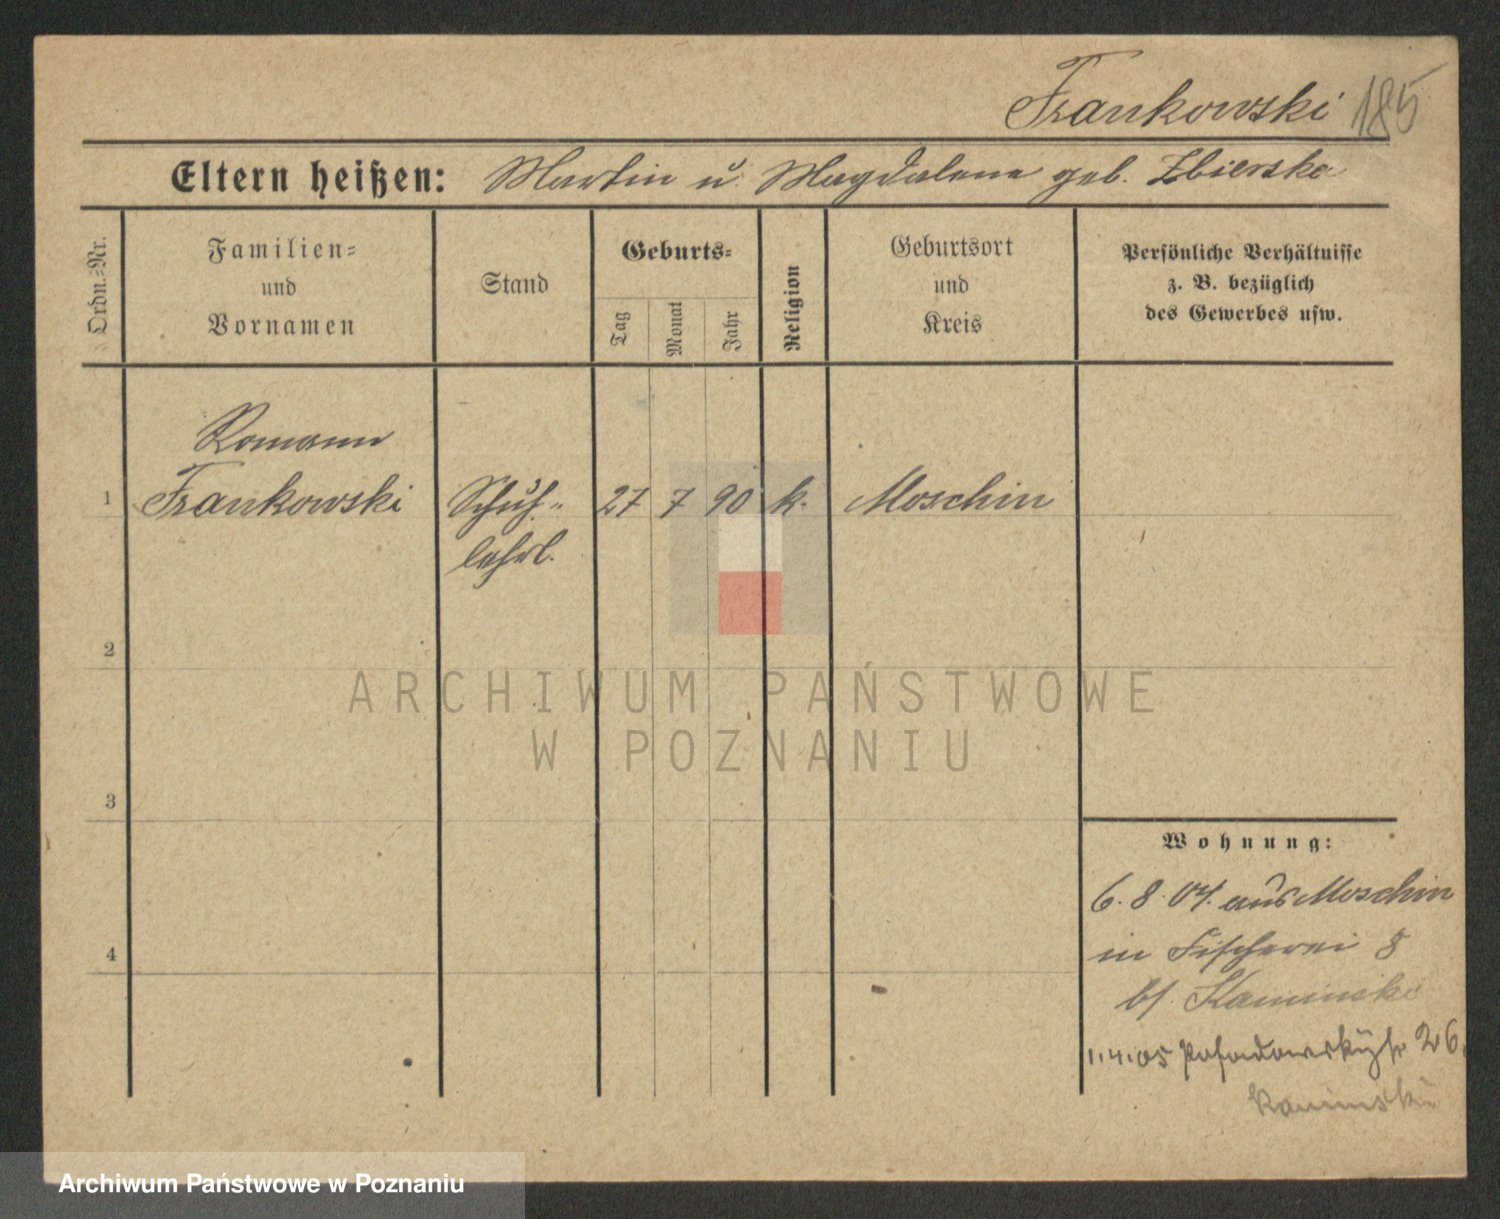 Frankowski 185
Eltern heißen: Martin u. Magdalena geb. Zbierska
Ordn.-Nr.
Familien-
und
Vornamen
Stand
Geburts-
Tag
Monat
Jahr
Religion
Geburtsort
und
Kreis
Persönliche Verhältnisse
z. B. bezüglich
des Gewerbes usw.
Romann
1 Frankowski Schuh- 27 7 90 k. Moschin
lehrl.
2
ARCHIWUM PAŃSTWOWE
W POZNANIU
3
Wohnung:
6. 8. 04. aus Moschin
4
in Fischerei 8
b/ Kaminski
1.4.05 Posadowskystr 26.
Kaminski
Archiwum Państwowe w Poznaniu